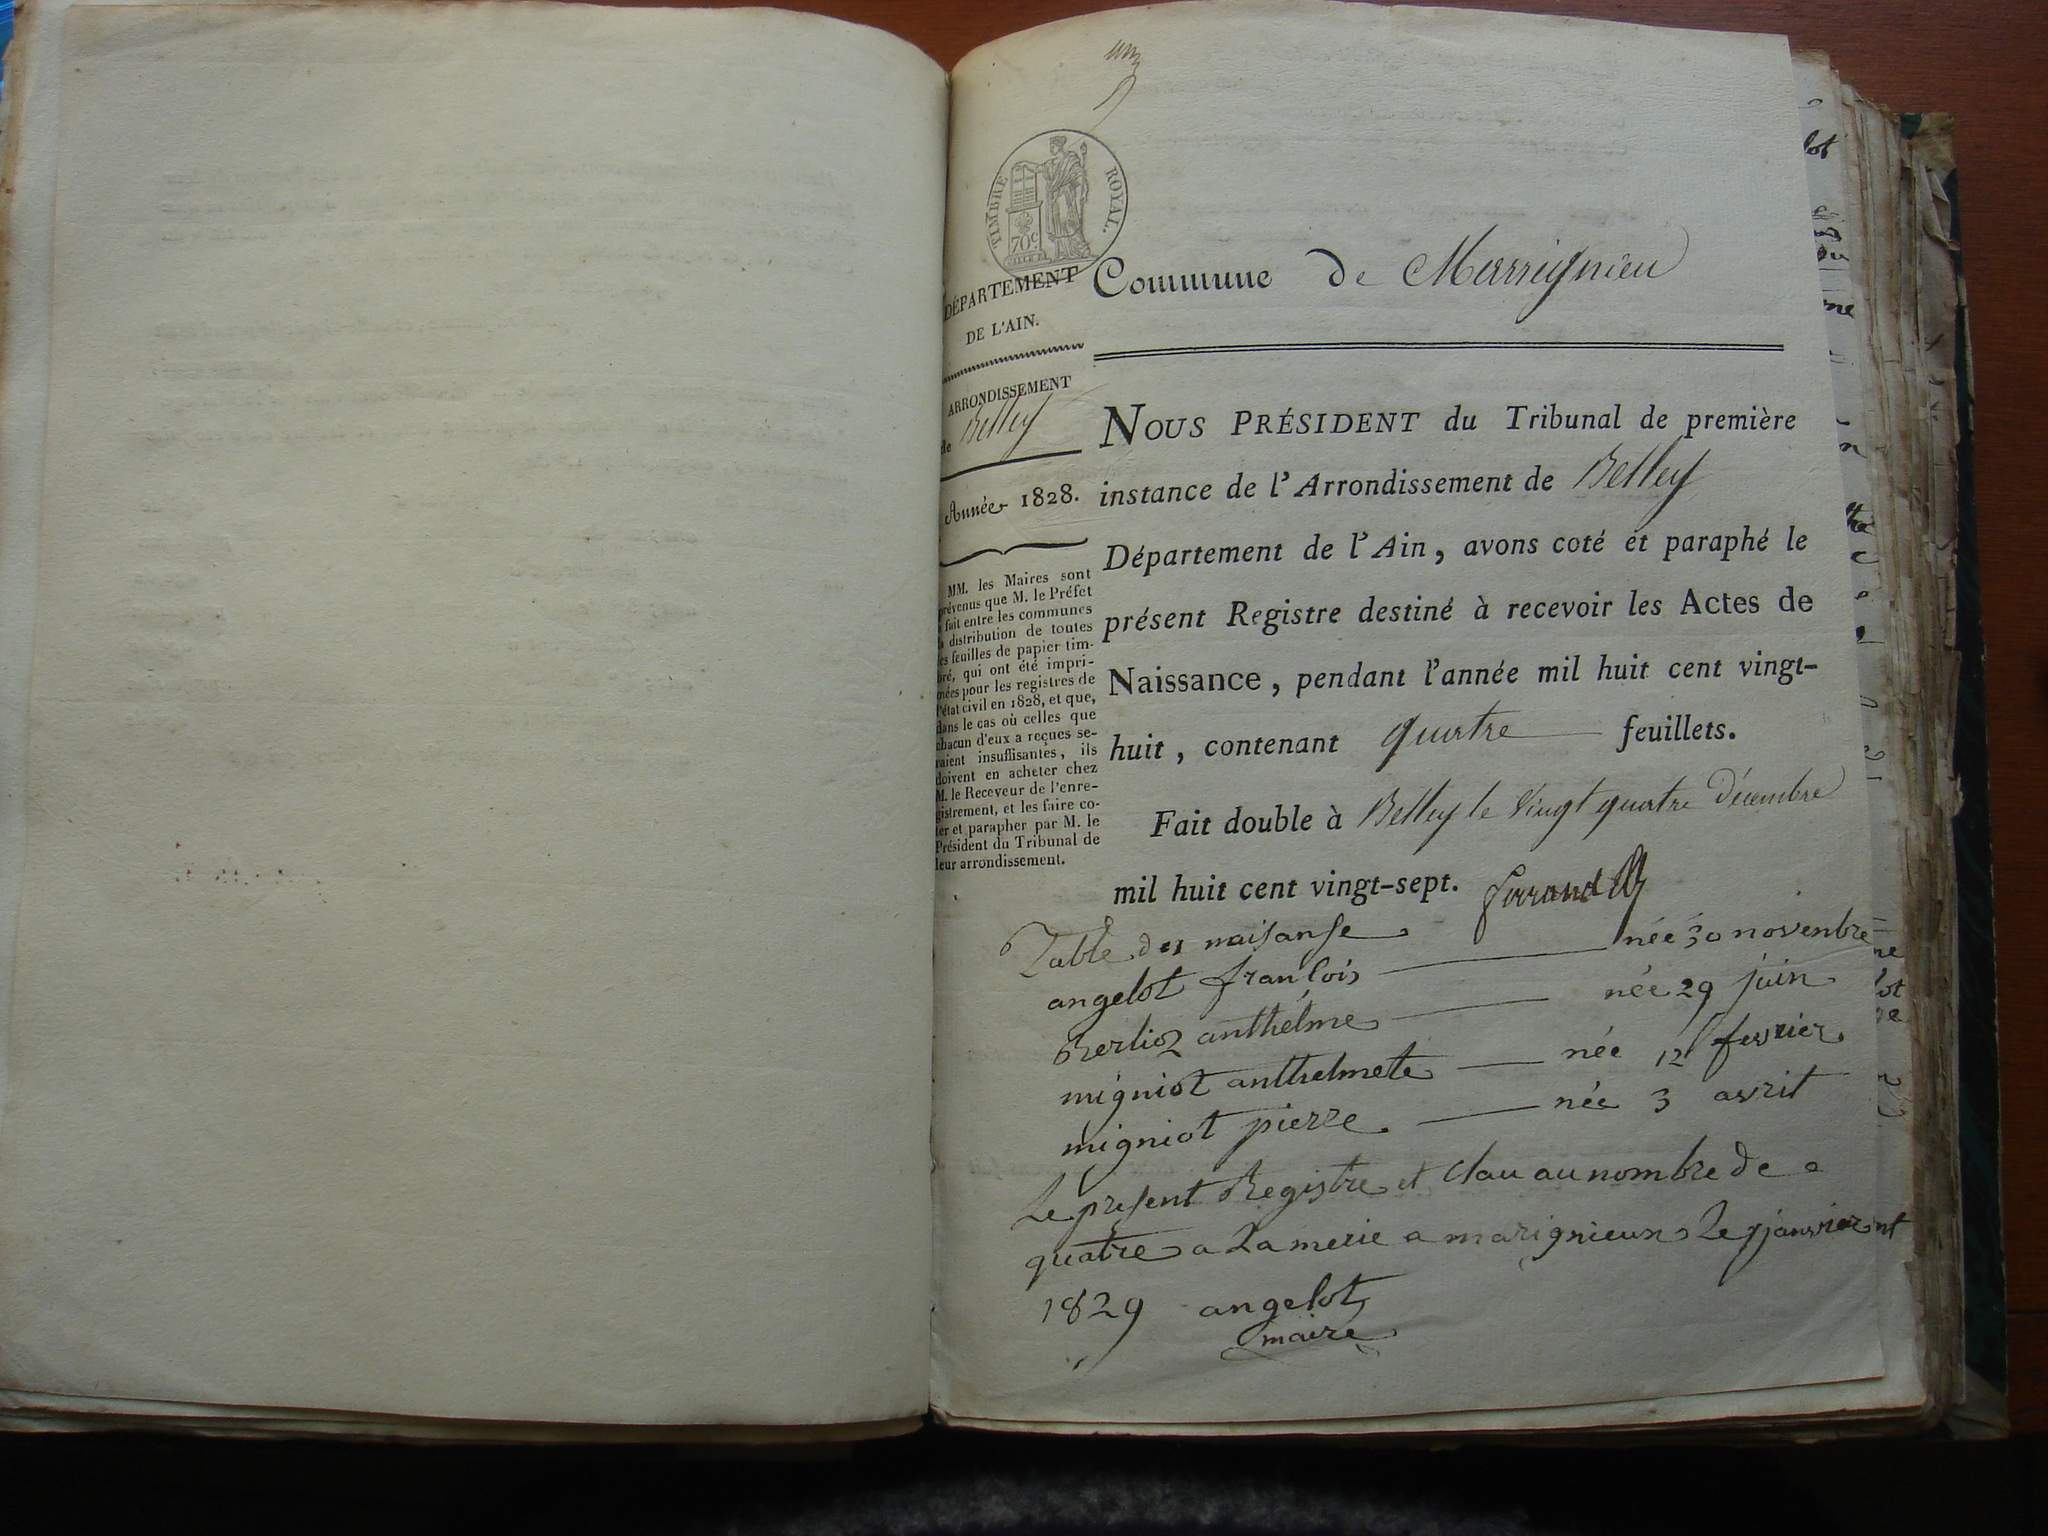 TIMBRE ROYAL.
70c
DÉPARTEMENT
DE L'AIN.
ARRONDISSEMENT
de Belley
Année 1828.
MM. les Maires sont
prévenus que M. le Préfet
a fait entre les communes
la distribution de toutes
les feuilles de papier tim-
bré, qui ont été impri-
mées pour les registres de
l'état civil en 1828, et que,
dans le cas où celles que
chacun d'eux a reçues se-
raient insuffisantes, ils
doivent en acheter chez
M. le Receveur de l'enre-
gistrement, et les faire co-
ter et parapher par M. le
Président du Tribunal de
leur arrondissement.
Commune de Marrignieu
NOUS PRÉSIDENT du Tribunal de première
instance de l'Arrondissement de Belley
Département de l'Ain, avons coté et paraphé le
présent Registre destiné à recevoir les Actes de
Naissance, pendant l'année mil huit cent vingt-
huit, contenant quatre feuillets.
Fait double à Belley le Vingt quatre Décembre
mil huit cent vingt-sept. ferrand
Table des naisanse
angelot franlois née 30 novenbre
Berlioz anthelme née 29 juin
migniot anthelmete née 12 fevrier
migniot pierre née 3 avrit
Le present Registre et clau au nombre de
quatre a La merie a marignieux Le janvier
1829 angelot
maire